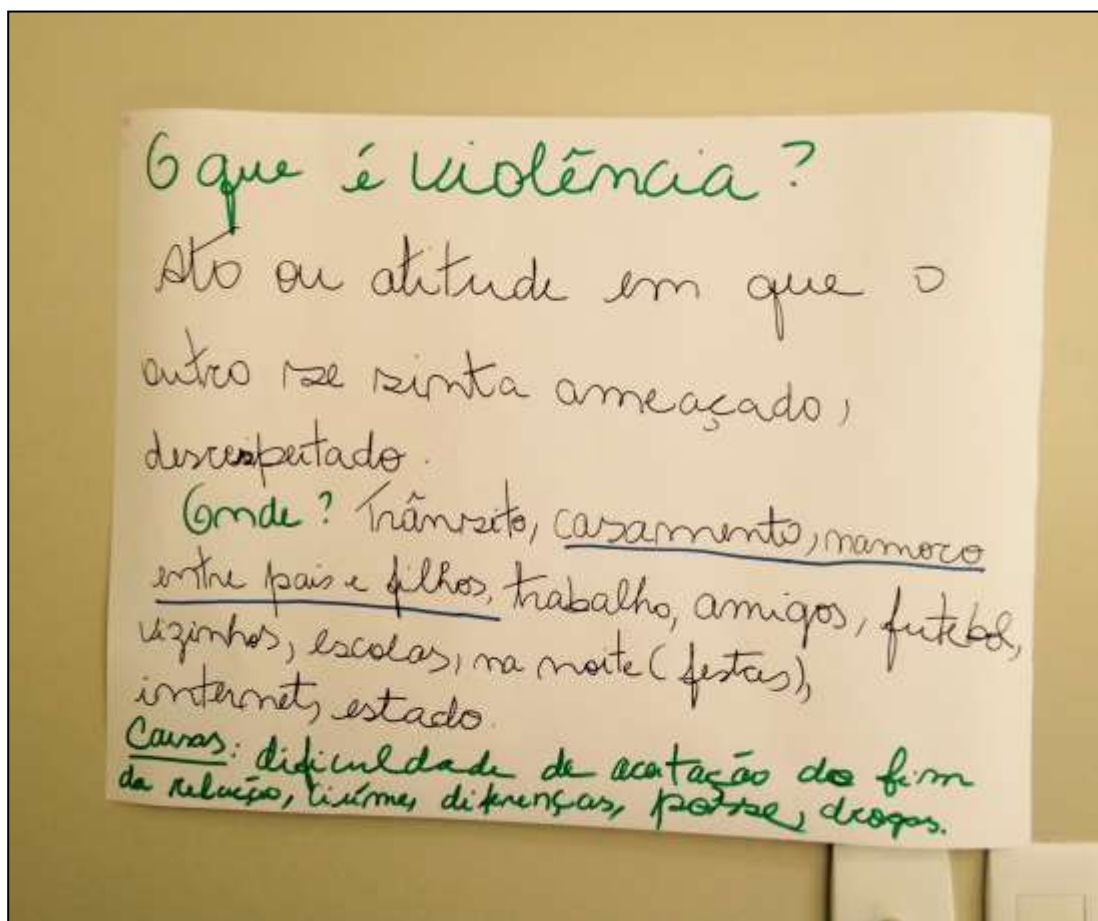 O que é violência?
Ato ou atitude em que o
outro se sinta ameaçado,
desrespeitado.
Onde? Trânsito, casamento, namoro
entre pais e filhos, trabalho, amigos, futebol,
vizinhos, escolas, na noite (festas),
internet, estado.
Causas: dificuldade de aceitação do fim
da relação, ciúme, diferenças, posse, drogas.